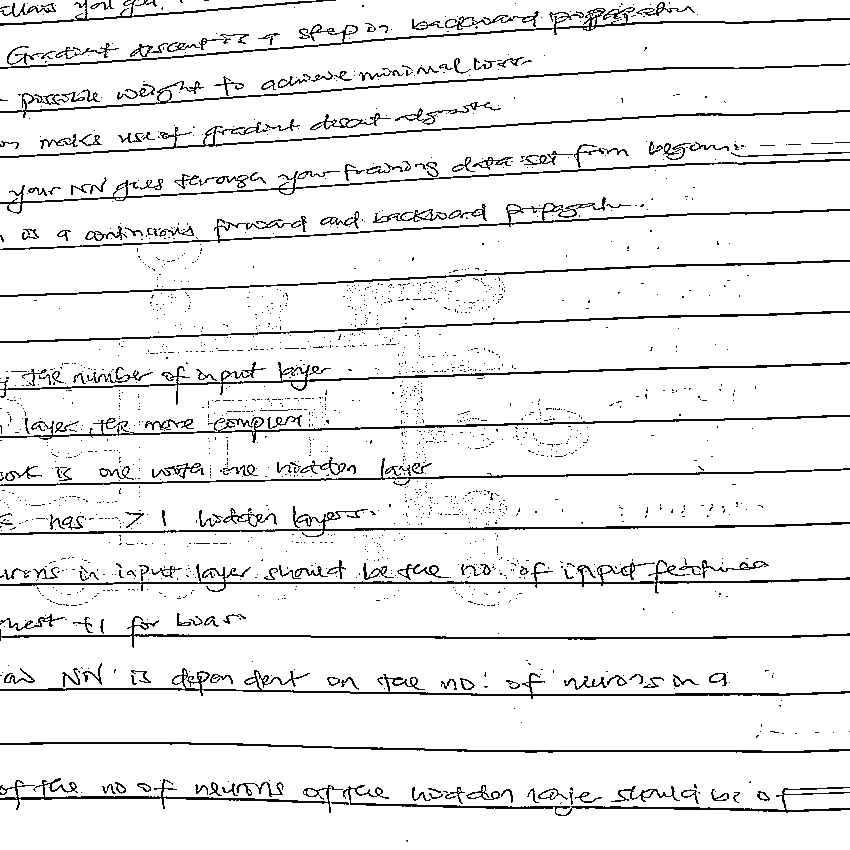 allows you
Gradient descent is a step in backward propagation
- possible weight to achieve minimal loss
make use of gradient descent
your NN goes through your training data set from
is a continuous forward and backward
the number of input layer
layer, the more complex.
work is one with one hidden layer
has > 1 hidden layers.
urons in input layer should be the no. of input
+1 for bias
NN is dependent on the no. of neurons in a
of the no of neurons of the hidden layer should be of